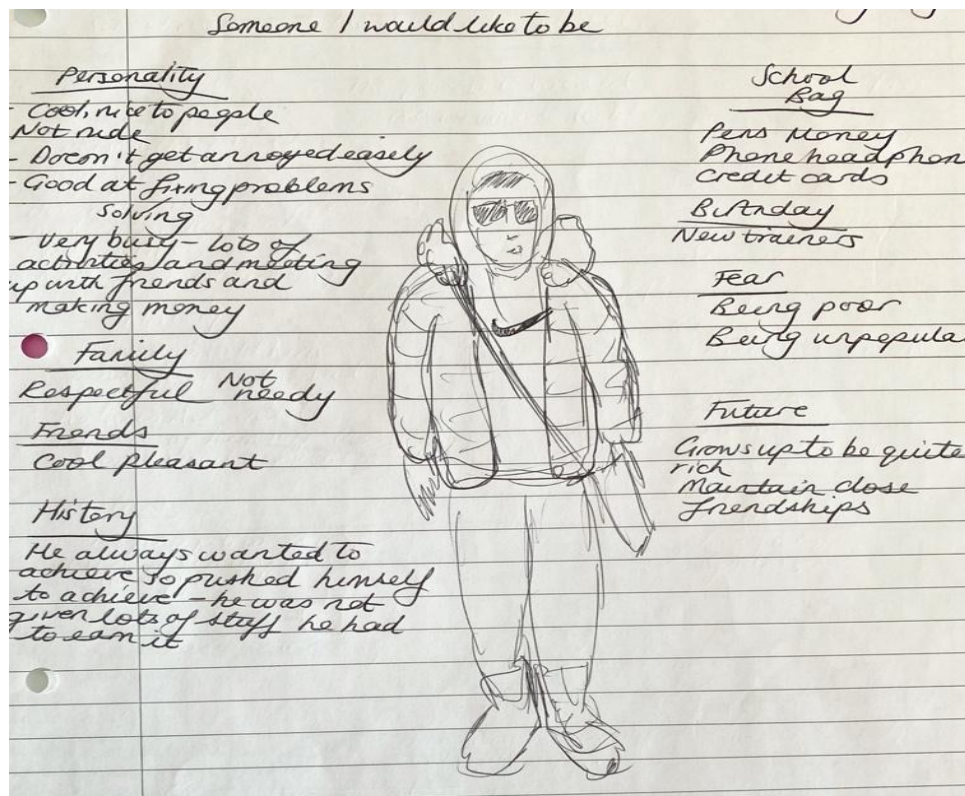 Someone I would like to be
Personality
- Cool, nice to people
Not rude
- Doesn't get annoyed easely
- Good at fixing problems
solving
- Very busy - lots of
activities and meeting
up with friends and
making money
Family
Respectful Not
needy
Friends
Cool pleasant
History
He always wanted to
achieve so pushed himself
to achieve - he was not
given lots of stuff he had
to earn it
School
Bag
Pens Money
Phone headphon
Credit cards
Birthday
New trainers
Fear
Being poor
Being unpopula
Future
Grows up to be quite
rich
Maintain close
friendships